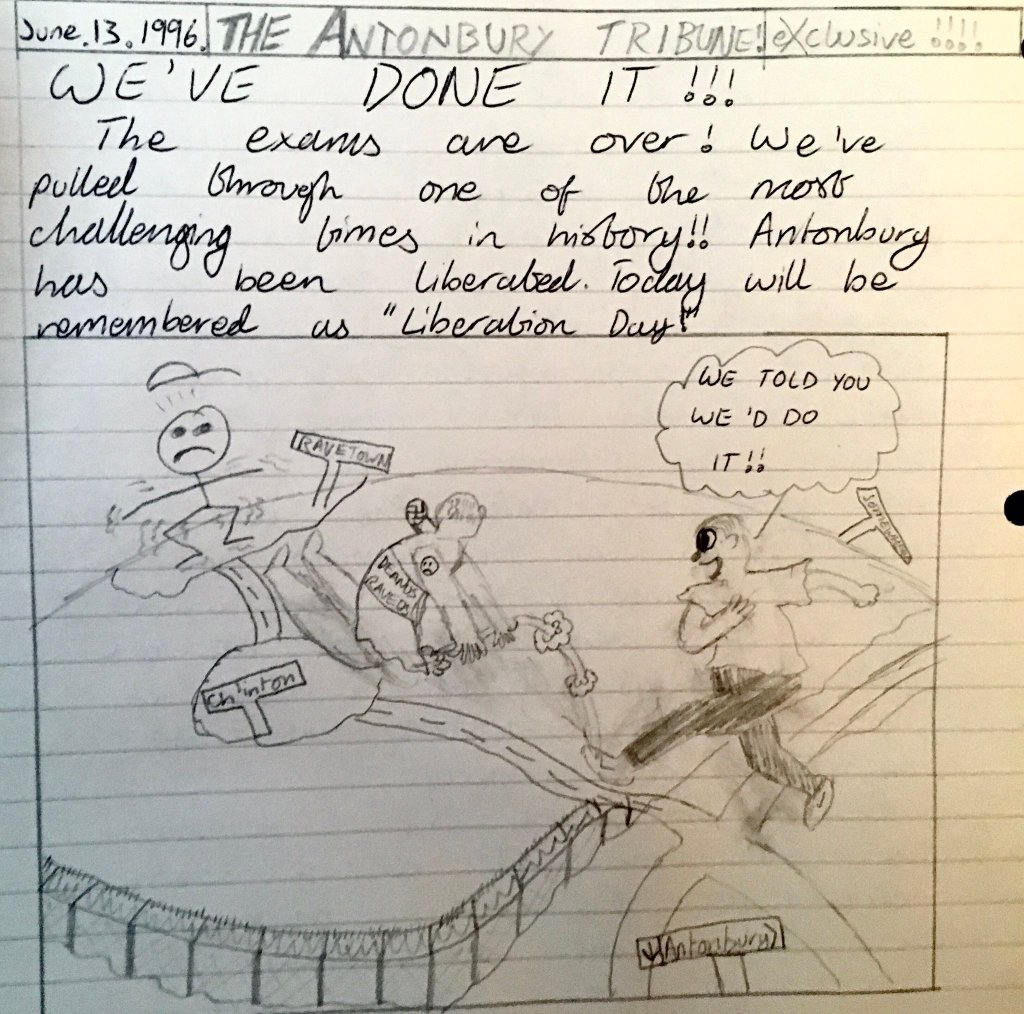 June.13.1996. THE ANTONBURY TRIBUNE! eXclusive !!!!
WE'VE DONE IT !!!
The exams are over! We've
pulled through one of the most
challenging times in history!! Antonbury
has been liberated. Today will be
remembered as "Liberation Day!"
WE TOLD YOU
WE'D DO
IT!!
RAVETOWN
Ch'inton
Antonbury